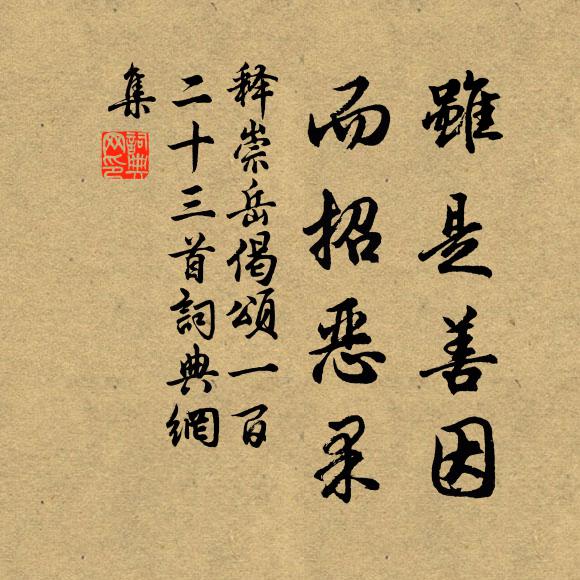 雖是善因
而招惡果
释崇岳偈頌一百
二十三首詞典網
集
詞典
网印